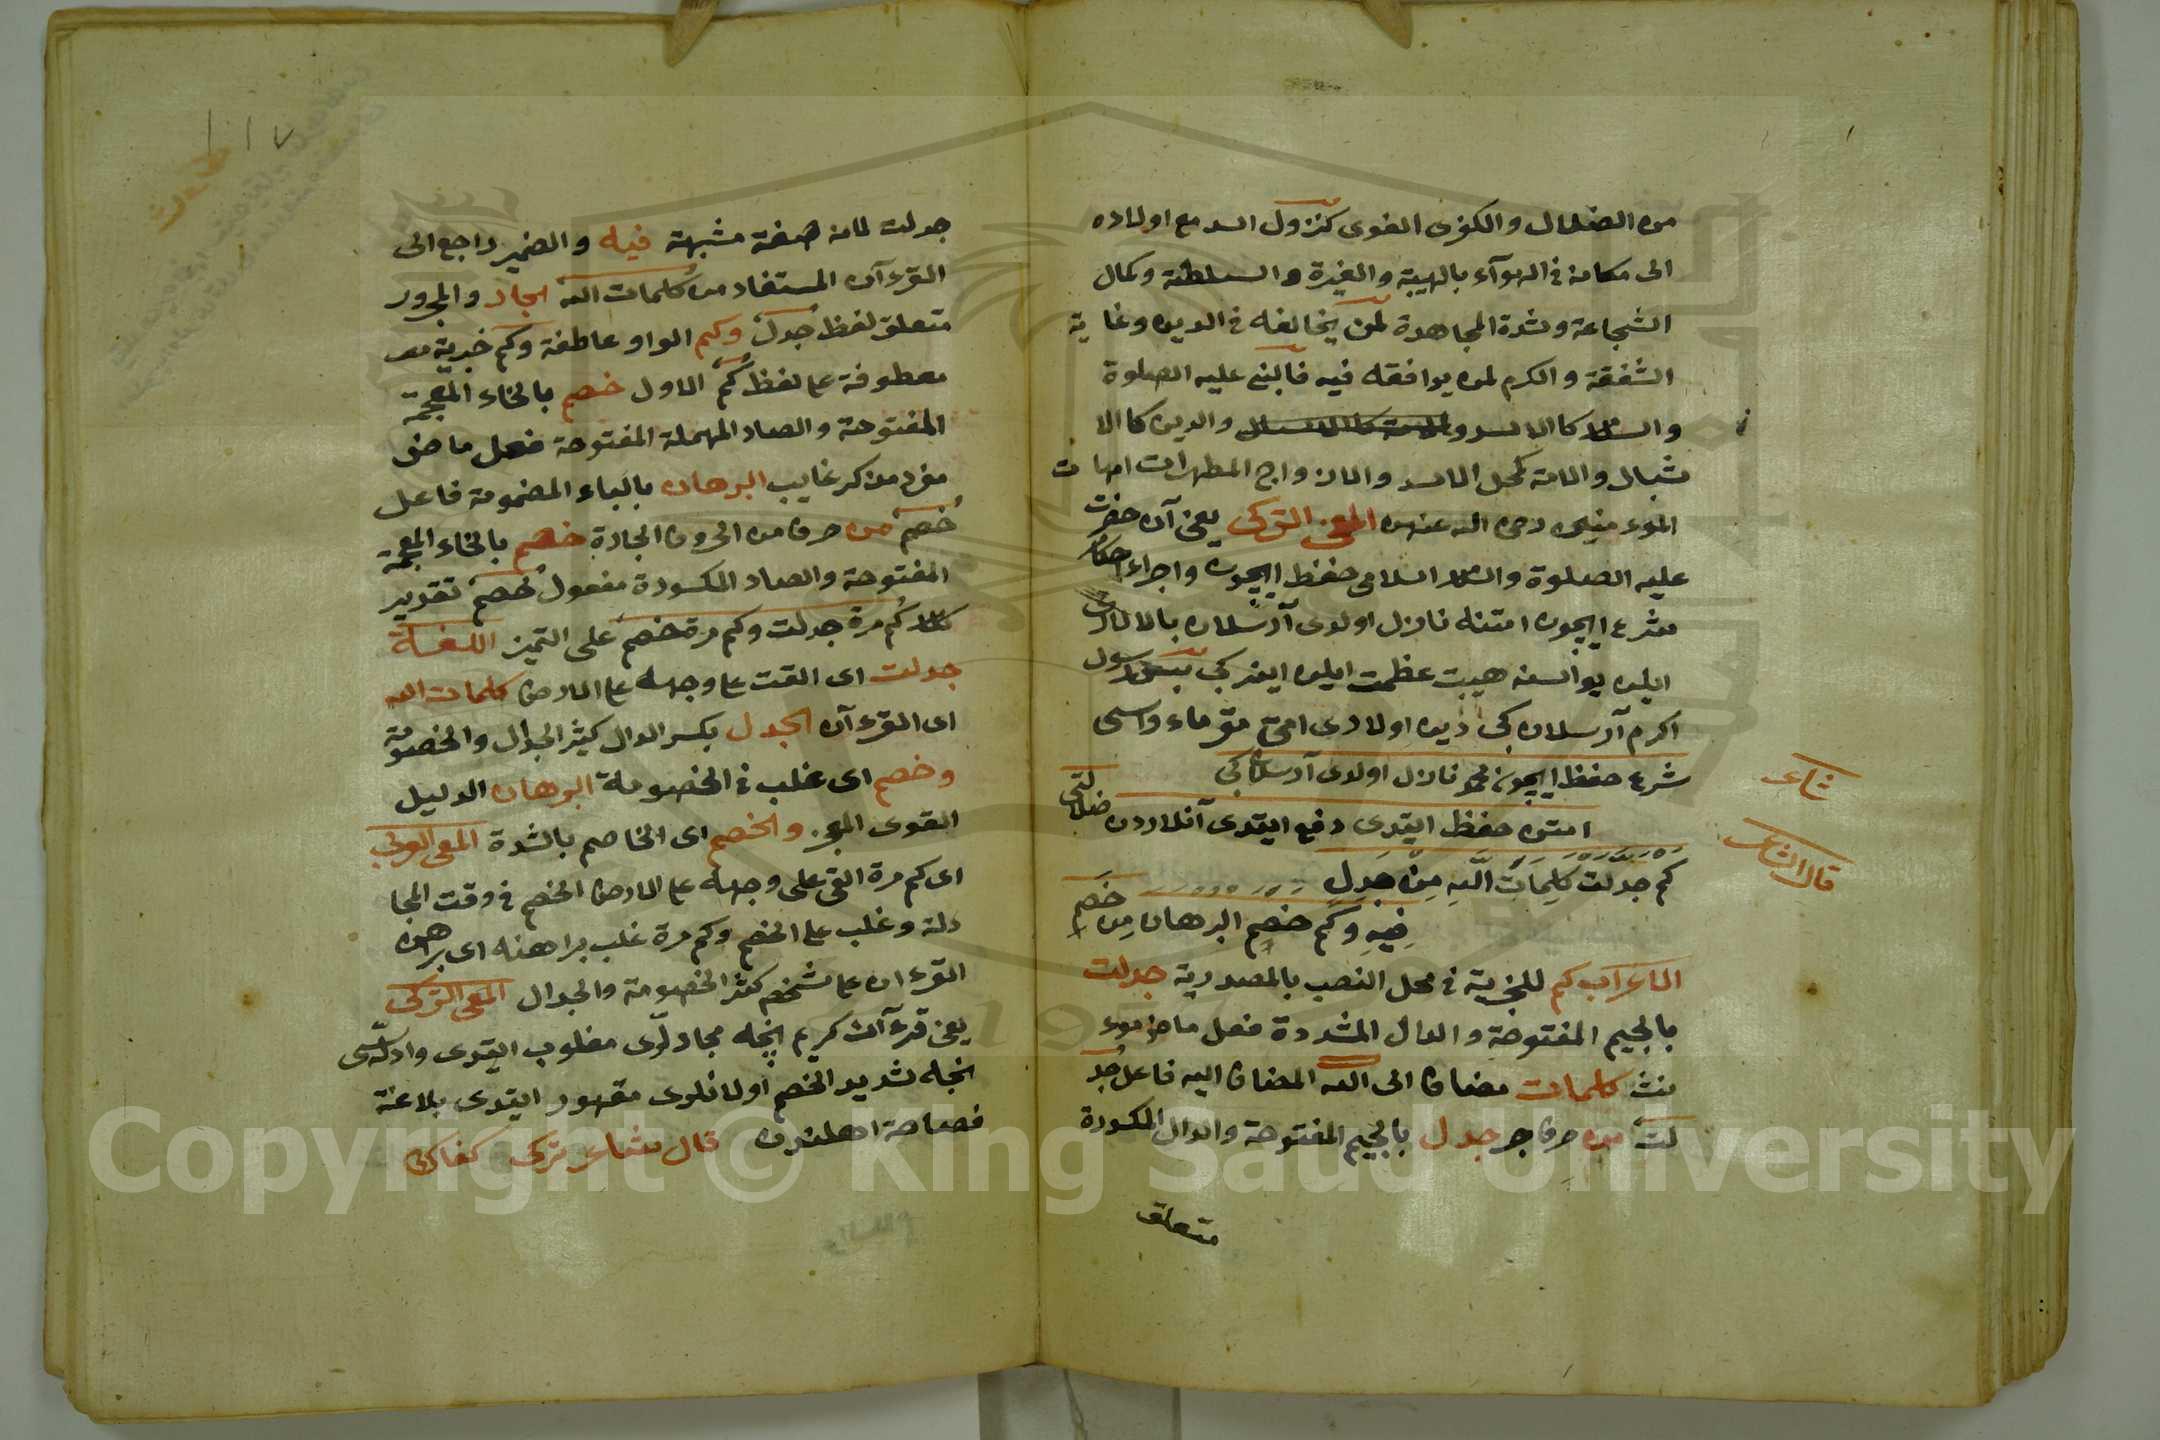 من الضلال والكفرى الغوى كنزول الاسد مع اولاده
الى مكانه فى الهوآء بالهيبة والغيرة والسلطنة وكمال
الشجاعة وشدة المجاهدة لمن يخالفه فى الدين وغاية
الشفقة والكرم لمن يوافقه فيه فالنبى عليه الصلوة
والسلام كالاسد والدين كالا
شبال والامة كمحل الاسد والازواج المطهرات امهات
المؤمنين رضى الله عنهن المعنى التركى يعنى آن حضرت
عليه الصلوة والسلام اسلامى حفظ ايچون واجراء احكام
شرع ايچون امتنه نازل اولدى آرسلان بالالارى
ايله يواسنه هيبت عظمت ايله اينر كبى پس رسول
اكرم آرسلان كبى دين اولادى امتى مقر ماء واسى
شاعر
شرع حفظ ايچون نازل اولدى آرسلان كبى
امتن حفظ ايتدى دفع ايتدى آنلاردن ضلالتى
قال الشاعر
كم جدلت كلمات الله من جدل
فيه وكم خصم البرهان من خصم
الاعراب كم للخبرية فى محل النصب بالمصدرية جدلت
بالجيم المفتوحة والدال المشددة فعل ماض مؤ
نث كلمات مضاف الى الله المضاف اليه فاعل جد
لت من حرف جر جدل بالجيم المفتوحة والدال المكسورة
متعلق
١١٧
جدلت لانه صفة مشبهة فيه والضمير راجع الى
القرءآن المستفاد من كلمات الله الجار والمجرور
متعلق لفظ جدل وكم الواو عاطفة وكم خبرية
معطوفة على لفظ كم الاول خصم بالخاء المعجمة
المفتوحة والصاد المهملة المفتوحة فعل ماض
مفرد مذكر غايب البرهان بالباء المضمومة فاعل
خصم من حرف من الحروف الجارة خصم بالخاء المعجمة
المفتوحة والصاد المكسورة مفعول خصم تقدير
كلام كم مرة جدلت وكم مرة خصم على التميز اللغة
جدلت اى القت على وجهه على الارض كلمات الله
اى القرءآن الجدل بكسر الدال كثير الجدال والخصومة
وخصم اى غلب فى الخصومة البرهان الدليل
القوى المعجز والخصم اى الخاصم بالشدة المعنى العربى
اى كم مرة القى على وجهه على الارض الخصم فى وقت المجا
دلة وغلب على الخصم وكم مرة غلب براهنه اى براهن
القرءان على شخص كثير الخصومة والجدال المعنى التركى
يعنى قرءآن كريم انجه مجادلرى مغلوب ايتدى وادله سى
نجه شديد الخصم اولانلرى مقهور ايتدى بلاغة
فصاحة اهلندن قال شاعر تركى كفاك